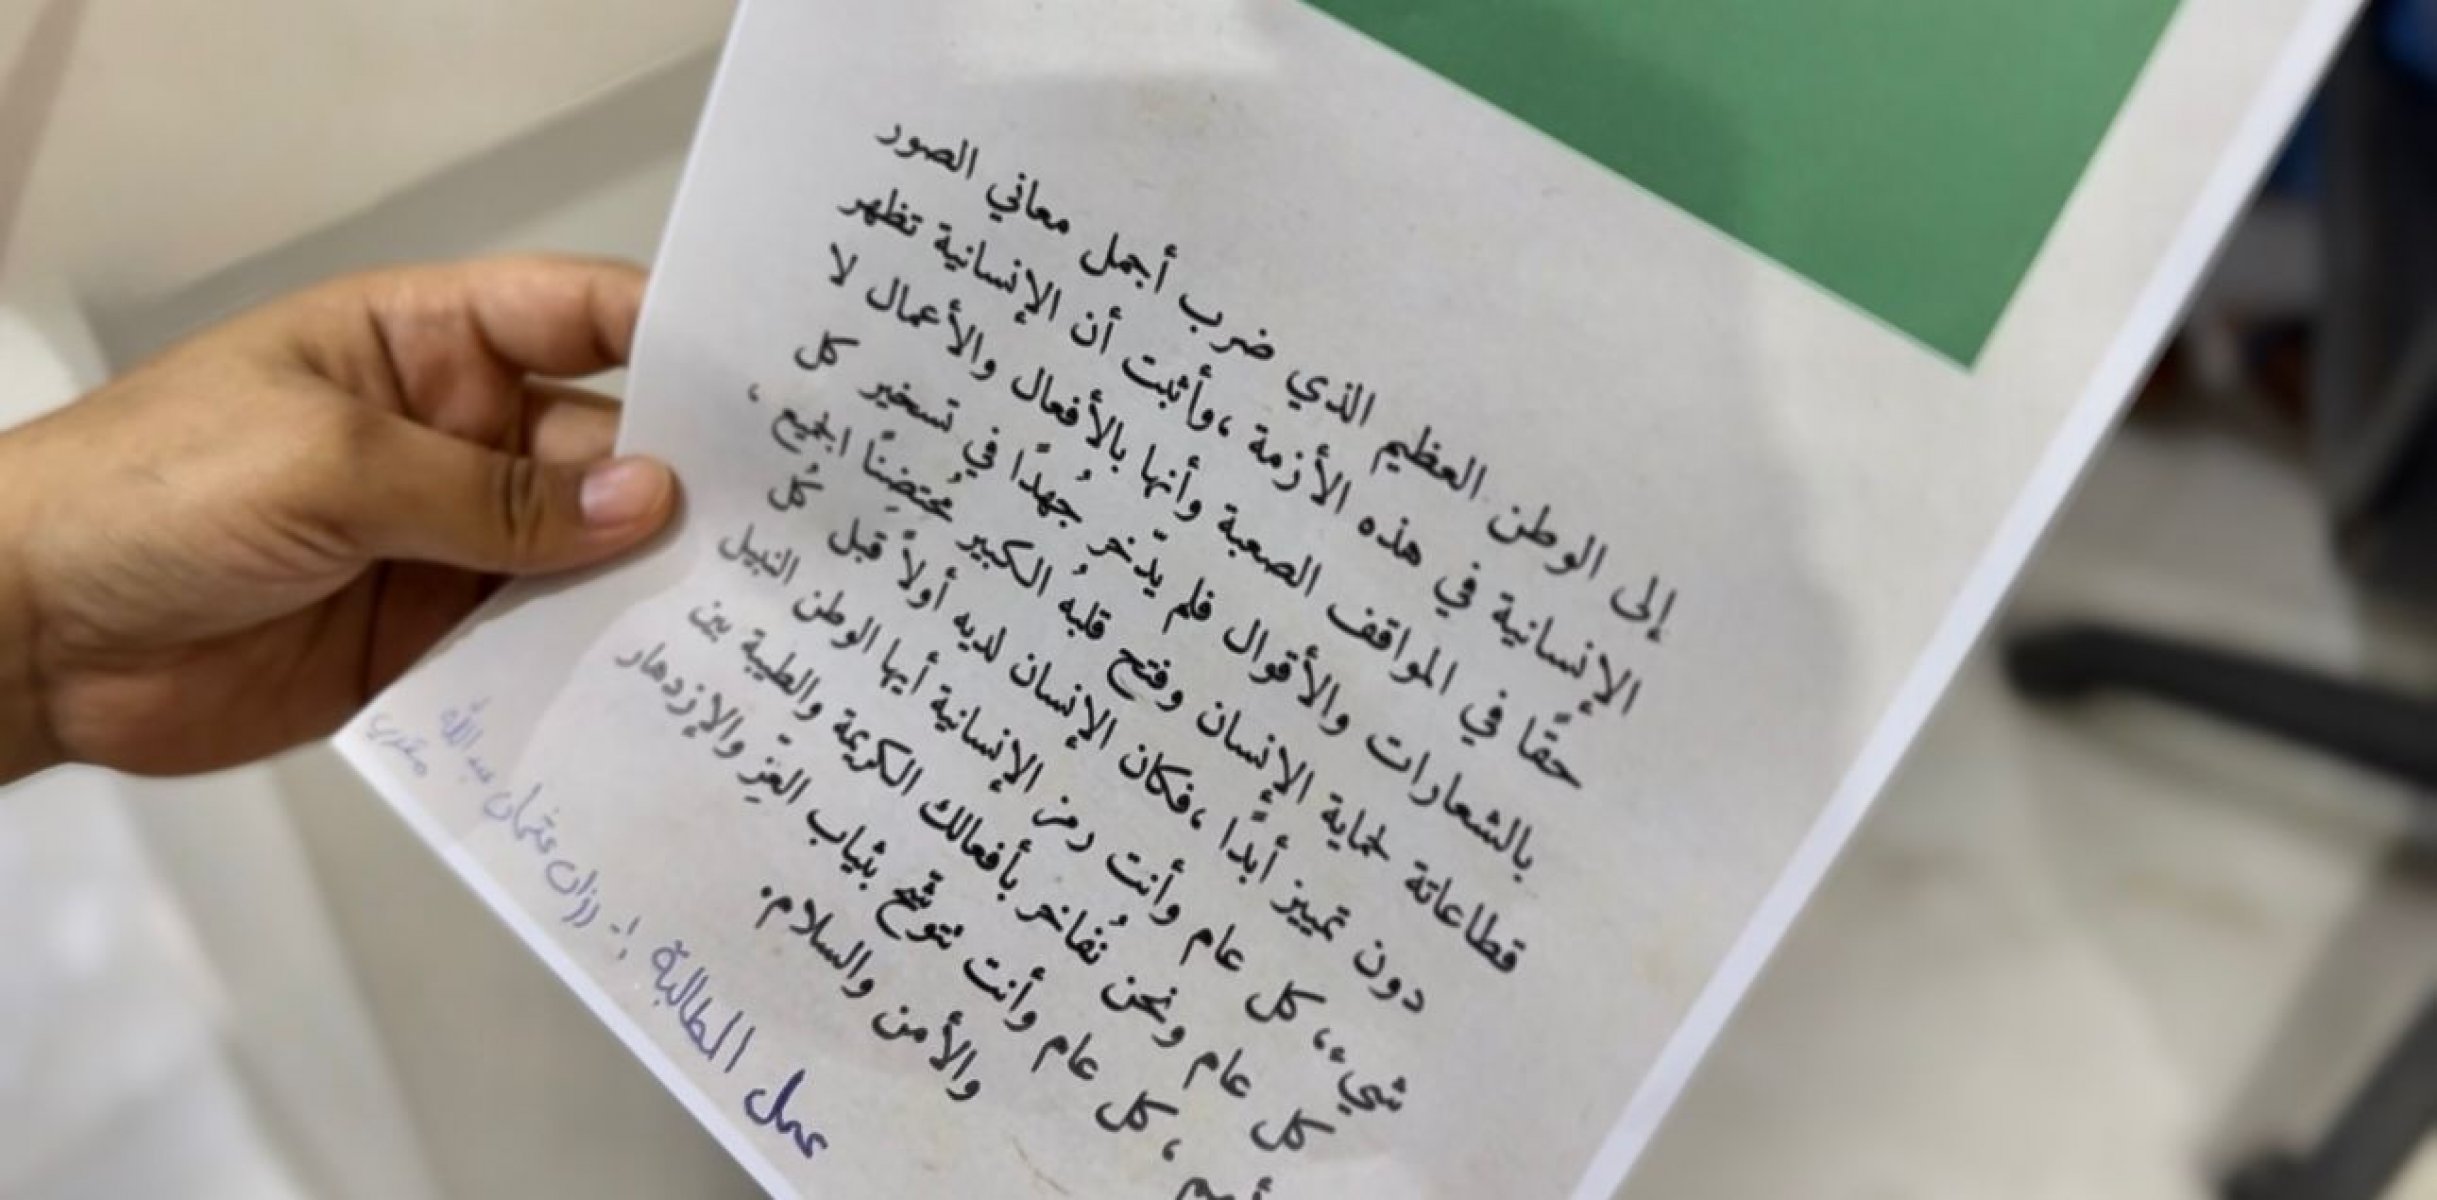 إلى الوطن العظيم الذي ضرب أجمل معاني الصور
الإنسانية في هذه الأزمة ،وأثبت أن الإنسانية تظهر
حقًّا في المواقف الصعبة وأنها بالأفعال والأعمال لا
بالشعارات والأقوال فلم يدّخر جُهدًا في تسخير كل
قطاعاتة لحماية الإنسان وفتح قلبهُ الكبير مُحتضِنًا الجميع ،
دون تمييز أبدًا ،فكان الإنسان لديه أولاً قبل كُل
شيء، كل عام وأنت رمز الإنسانية أيها الوطن النبيل
كل عام ونحن نُفاخر بأفعالك الكريمة والطيبة بين
، كل عام وأنت تتوشّح بثياب العِزّ والإزدهار
والأمن والسلام.
عمل الطالبة :- رزان عثمان عبدالله